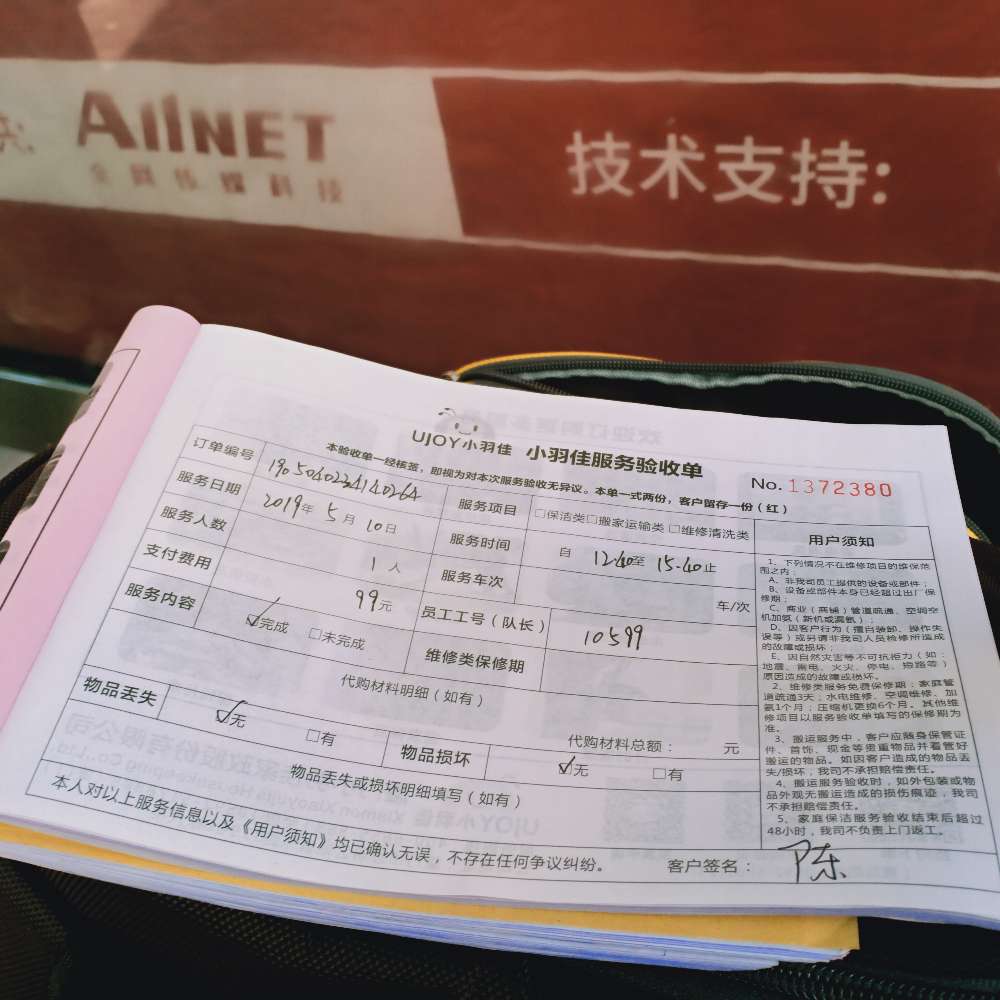 AllNET
技术支持:
UJOY小羽佳 小羽佳服务验收单
No. 1372380
本验收单一经核签,即视为对本次服务验收无异议。本单一式两份,客户留存一份(红)
订单编号 服务项目 □保洁类□搬家运输类□维修清洗类
服务日期 2019年5月10日 服务时间 自 12:40至 15:40止
服务人数 1人 服务车次 车/次
支付费用 99元 员工工号(队长) 10599
服务内容 ☑完成 □未完成 维修类保修期
代购材料明细(如有)
代购材料总额: 元
物品丢失 ☑无 □有 物品损坏 ☑无 □有
物品丢失或损坏明细填写(如有)
本人对以上服务信息以及《用户须知》均已确认无误,不存在任何争议纠纷。
客户签名: 陈
用户须知
1、下列情况不在维修项目的维保范
围之内:
A、非我司员工提供的设备或部件;
B、设备或部件本身已经超过出厂保
修期;
C、商业(商铺)管道疏通、空调空
机加氨(新机或漏氨);
D、因客户行为(擅自装卸、操作失
误等)或另请非我司人员检修所造成
的故障或损坏;
E、因自然灾害等不可抗拒力(如:
地震、雷电、火灾、停电、跑路等)
原因造成的故障或损坏。
2、维修类服务免费保修期:家庭管
道疏通3天;水电维修、空调维修、加
氨1个月;压缩机更换6个月。其他维
修项目以服务验收单填写的保修期为
准。
3、搬运服务中,客户应随身保管证
件、首饰、现金等贵重物品并看管好
搬运的物品。如因客户造成的物品丢
失/损坏,我司不承担赔偿责任。
4、搬运服务验收时,如外包装或物
品外观无搬运造成的损伤痕迹,我司
不承担赔偿责任。
5、家庭保洁服务验收结束后超过
48小时,我司不负责上门返工。